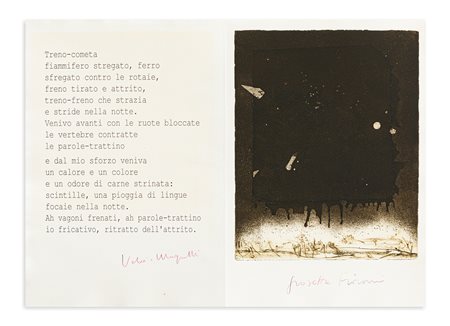 Treno-cometa
fiammifero stregato, ferro
sfregato contro le rotaie,
freno tirato e attrito,
treno-freno che strazia
e stride nella notte.
Venivo avanti con le ruote bloccate
le vertebre contratte
le parole-trattino
e dal mio sforzo veniva
un calore e un colore
e un odore di carne strinata:
scintille, una pioggia di lingue
focaie nella notte.
Ah vagoni frenati, ah parole-trattino
io fricativo, ritratto dell'attrito.